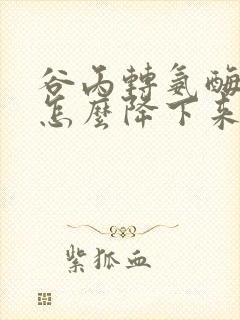 谷丙轉氨酶
怎麼降下來
紫狐血